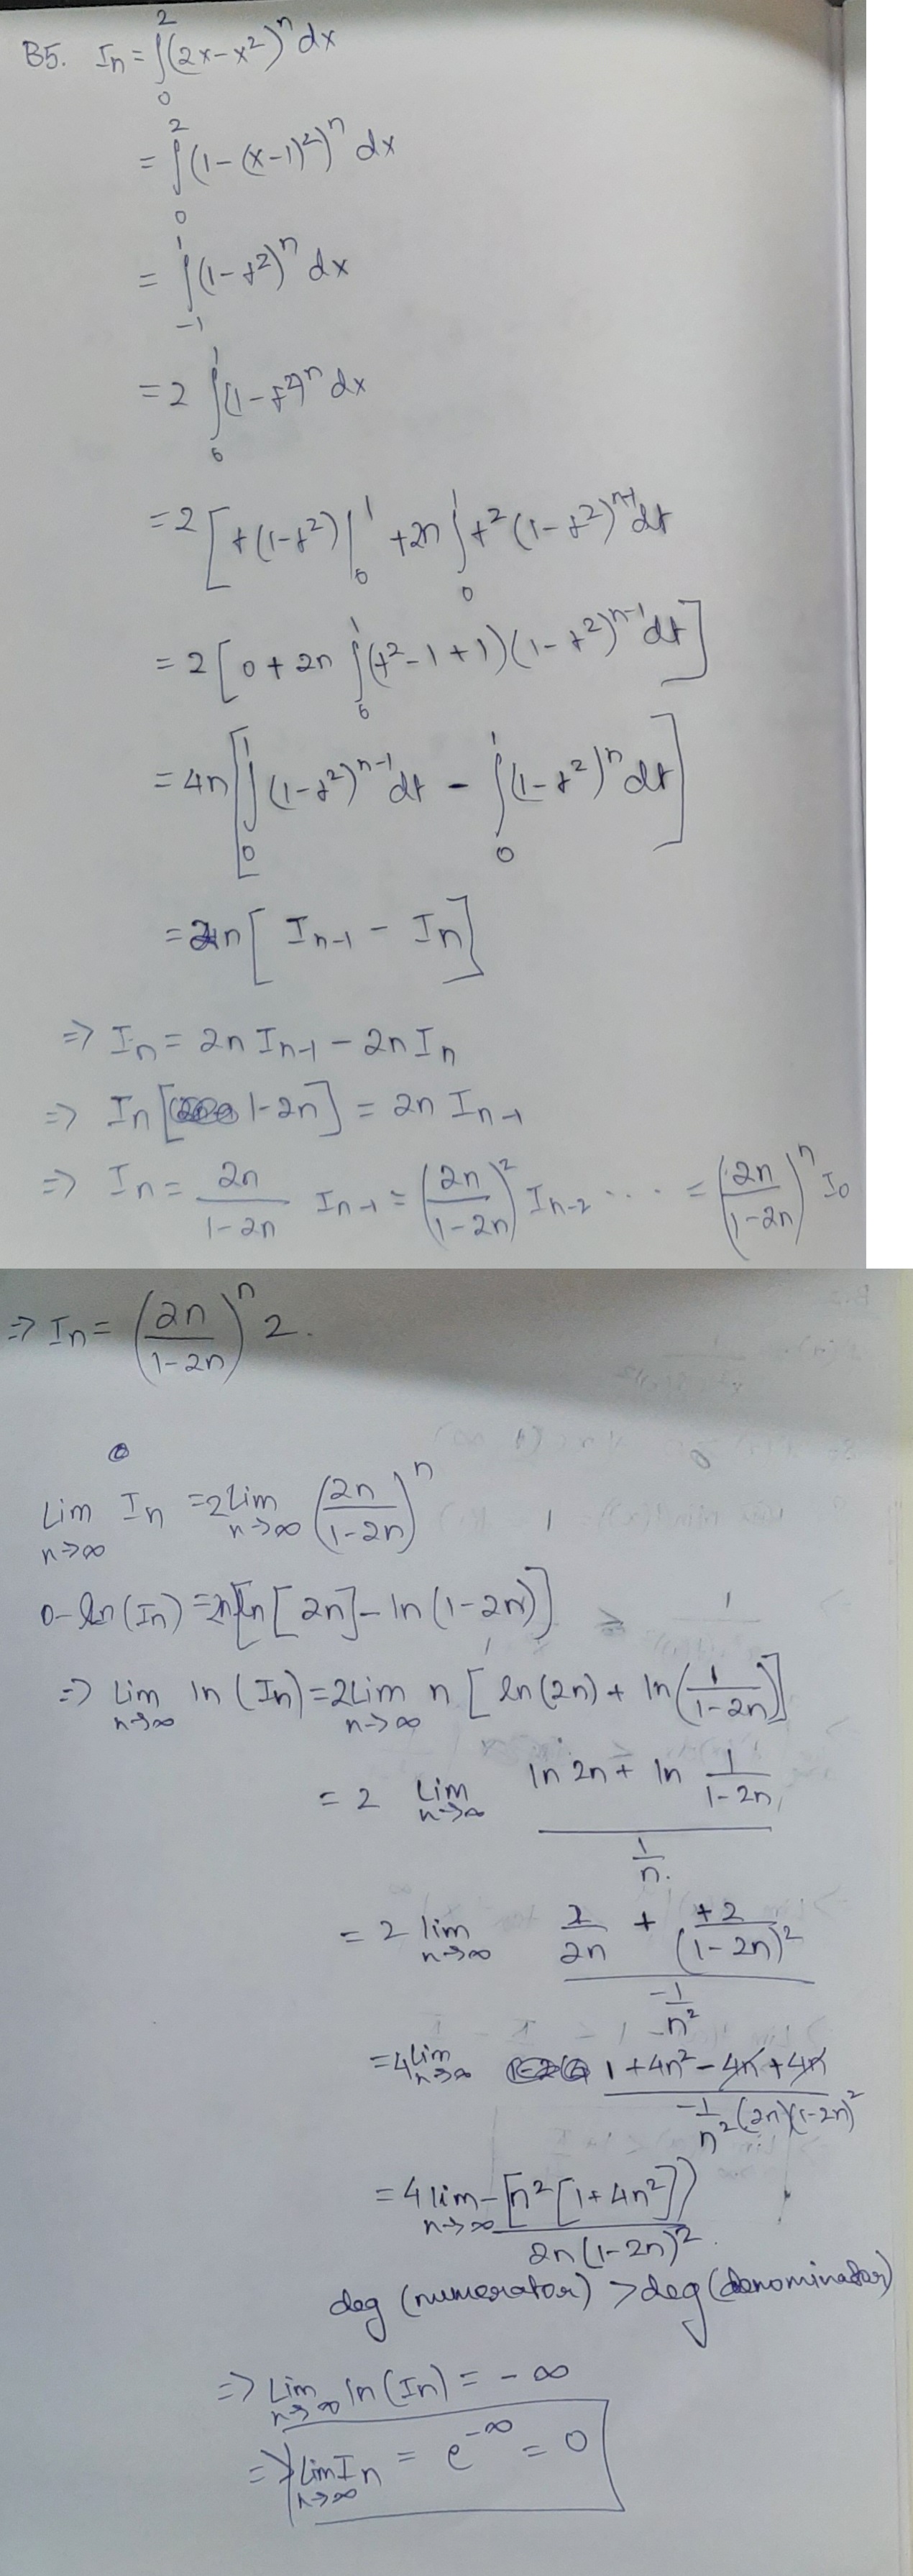 B5. In = ∫₀² (2x-x²)ⁿ dx
= ∫₀² (1-(x-1)²)ⁿ dx
= ∫₋₁¹ (1-t²)ⁿ dx
= 2 ∫₀¹ (1-t²)ⁿ dx
= 2 [ t(1-t²) |₀¹ + 2n ∫₀¹ t² (1-t²)ⁿ⁻¹ dt
= 2 [ 0 + 2n ∫₀¹ (t²-1+1)(1-t²)ⁿ⁻¹ dt ]
= 4n [ ∫₀¹ (1-t²)ⁿ⁻¹ dt - ∫₀¹ (1-t²)ⁿ dt ]
= 2n [ In-1 - In ]
⇒ In = 2n In-1 - 2n In
⇒ In [ 1-2n ] = 2n In-1
⇒ In = 2n/(1-2n) In-1 = (2n/(1-2n))² In-2 ... = (2n/(1-2n))ⁿ I0
⇒ In = (2n/(1-2n))ⁿ 2.
Lim n→∞ In = 2 Lim n→∞ (2n/(1-2n))ⁿ
ln(In) = 2n[ln[2n] - ln(1-2n)]
⇒ Lim n→∞ ln(In) = 2 Lim n→∞ n [ ln(2n) + ln(1/(1-2n)) ]
= 2 Lim n→∞ (ln 2n + ln 1/(1-2n)) / (1/n)
= 2 lim n→∞ (2/2n + +2/(1-2n)²) / (-1/n²)
= 4 lim n→∞ (1+4n²-4n+4n) / (-1/n² (2n)(1-2n)²)
= 4 lim n→∞ -[n²[1+4n²]) / 2n(1-2n)²
deg (numerator) > deg (denominator)
⇒ Lim n→∞ ln(In) = -∞
⇒ Lim n→∞ In = e^-∞ = 0